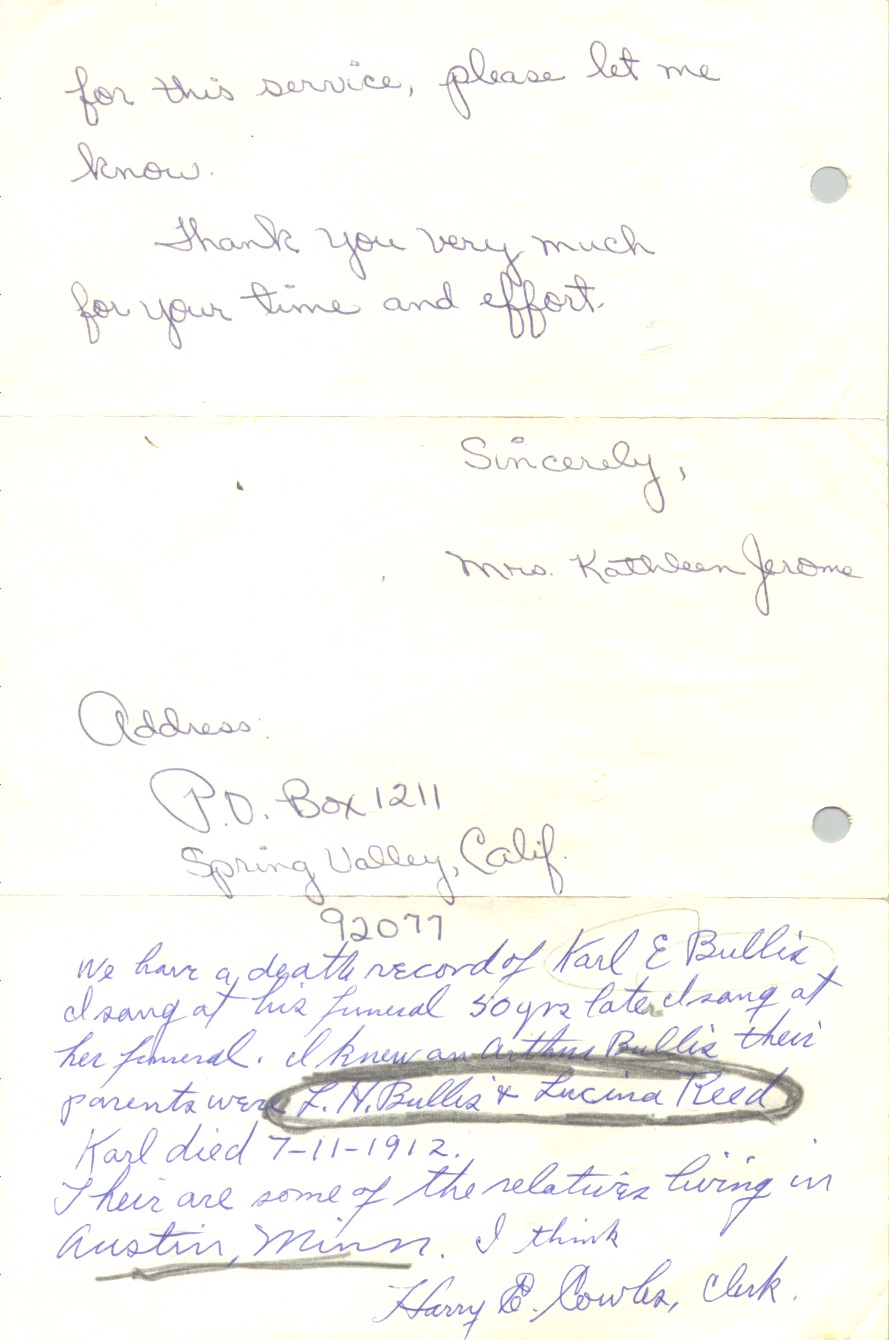 for this service, please let me
know.
Thank you very much
for your time and effort.
Sincerely,
Mrs. Kathleen Jerome
Address:
P.O. Box 1211
Spring Valley, Calif.
92077
We have a death record of Karl E Bullis
I sang at his funeral 50 yrs later I sang at
her funeral. I knew an Arthur Bullis their
parents were L. H. Bullis & Lucina Reed
Karl died 7-11-1912.
Their are some of the relatives living in
Austin, Minn. I think
Harry E. Cowles, Clerk.